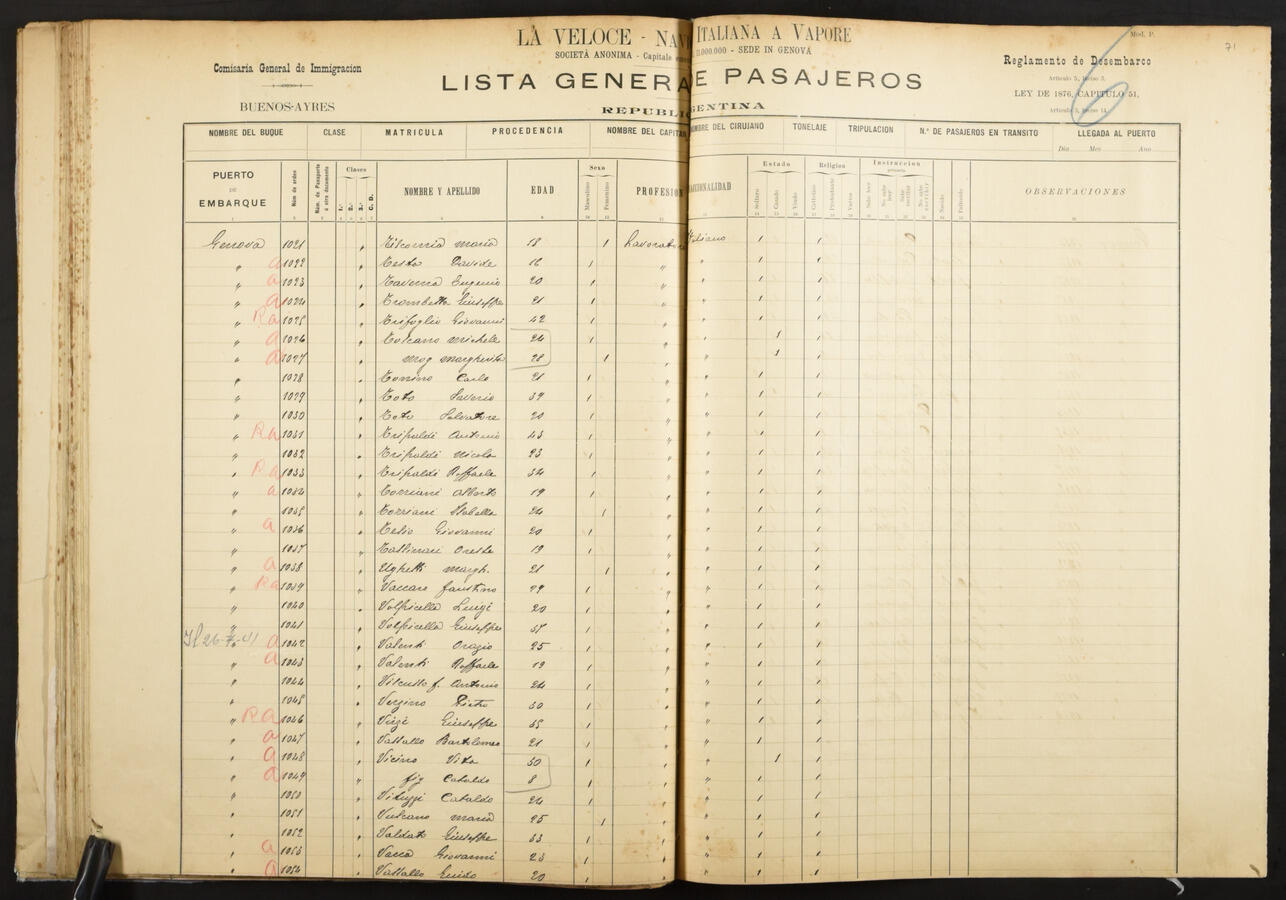 71
Mod. P.
6
LA VELOCE - NAV ITALIANA A VAPORE
SOCIETÀ ANONIMA - Capitale 11.000.000 - SEDE IN GENOVA
Comisaria General de Immigracion
BUENOS-AYRES
LISTA GENERA E PASAJEROS
REPUBLI GENTINA
Reglamento de Desembarco
Articulo 5, Inciso 3.
LEY DE 1876, CAPITULO 51,
Articulo 5, Inciso 14.
NOMBRE DEL BUQUE CLASE MATRICULA PROCEDENCIA NOMBRE DEL CAPITAN OMBRE DEL CIRUJANO TONELAJE TRIPULACION N.º DE PASAJEROS EN TRANSITO LLEGADA AL PUERTO
Dia Mes Ano
PUERTO DE EMBARQUE Núm de orden Núm. de Pasaporte ó otro documento Clases 1.ª 2.ª 3.ª C. D. NOMBRE Y APELLIDO EDAD Sexo Masculino Femenino PROFESION ACIONALIDAD Estado Soltero Casado Viudo Religion Catholico Protestante Varios Instruccion OBSERVACIONES
Genova 1021 maria 18 Lavorator Italiano
" a 1022 Testa Davide 16
" a 1023 Taverna Eugenio 20
" a 1024 Trombetta Giuseppe 21
" Ra 1025 Trifoglio Giovanni 42
" a 1026 Tolcano Michele 24
" a 1027 mog margherita 28
" 1028 Tonino Carlo 21
" 1029 Toto Saverio 37
" 1030 Toto Salvatore 20
" Ra 1031 Tripaldi Antonio 43
" 1032 Tripaldi Nicola 23
" Ra 1033 Tripaldi Raffaele 34
" a 1034 Torriani Alberto 19
" 1035 Torriani Isabella 24
" a 1036 Tesio Giovanni 20
" 1037 Oreste 19
" a 1038 Ughetti margh. 21
" Ra 1039 Vaccaro faustino 29
" 1040 Volpicella Luigi 20
" 1041 Volpicella Giuseppe
a 1042 Valenti Orazio 25
" a 1043 Valenti Raffaele 19
" 1044 f. Antonio 24
" 1045 Verzino Pietro 30
" Ra 1046 Giuseppe 35
" a 1047 Vassallo Bartolomeo 21
" a 1048 Vicino Vito 30
" a 1049 fig Cataldo 8
" 1050 Vituzzi Cataldo 24
" 1051 Vulcano maria 25
" 1052 Giuseppe 33
" a 1053 Vacca Giovanni 23
" a 1054 Vassallo Guido 20